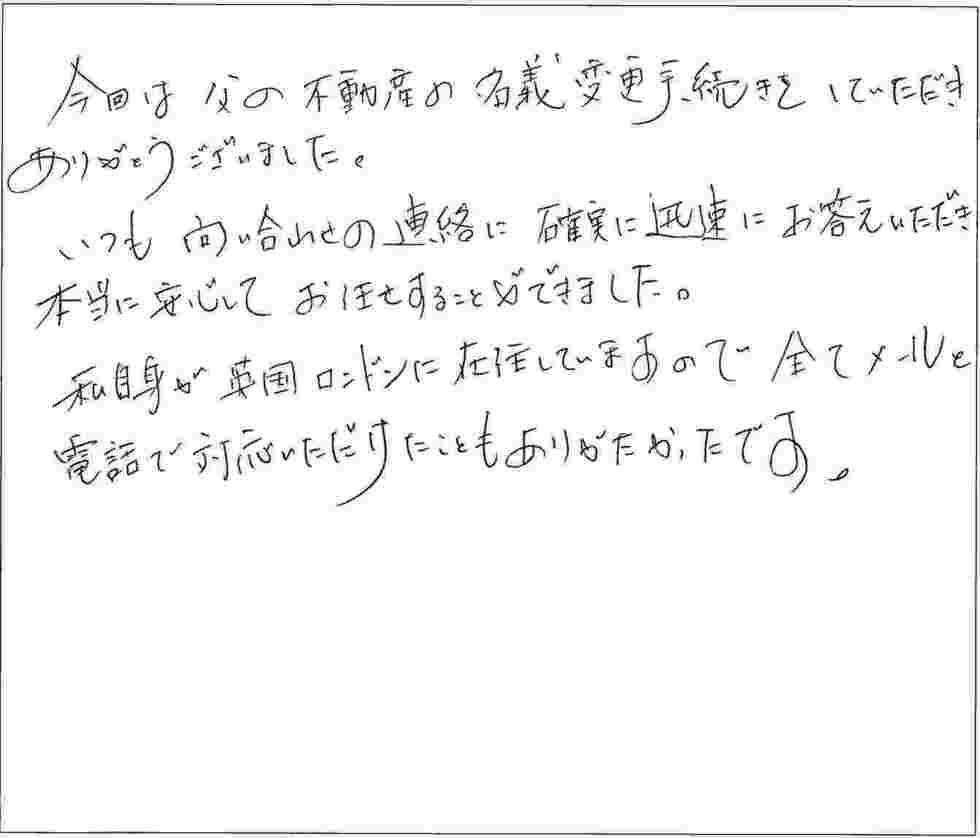 今回は父の不動産の名義変更手続きをしていただき
ありがとうございました。
いつも問い合わせの連絡に確実に迅速にお答えいただき
本当に安心してお任せすることができました。
私自身が英国ロンドンに在住していますので全てメールと
電話で対応いただけたこともありがたかったです。